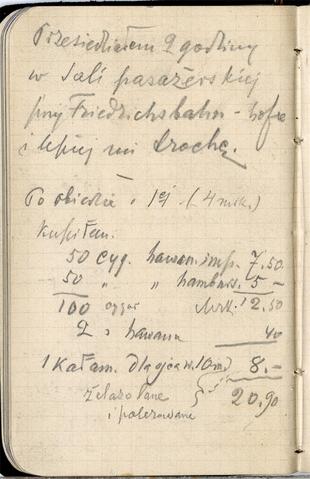 Przesiedziałem 2 godziny
w Sali pasażerskiej
przy Friedrichsbahn-hofie
i lepiej mi trochę.
Po obiedzie o 1ej (4 mrk.)
kupiłem:
50 cyg. hawan. imp. 7.50
50 " " hamburs. 5 –
100 cygar Mrk. 12.50
2 " hawana 40
1 kałam. dla ojca w. 8.–
żelazo łane 20.90
i polerowane